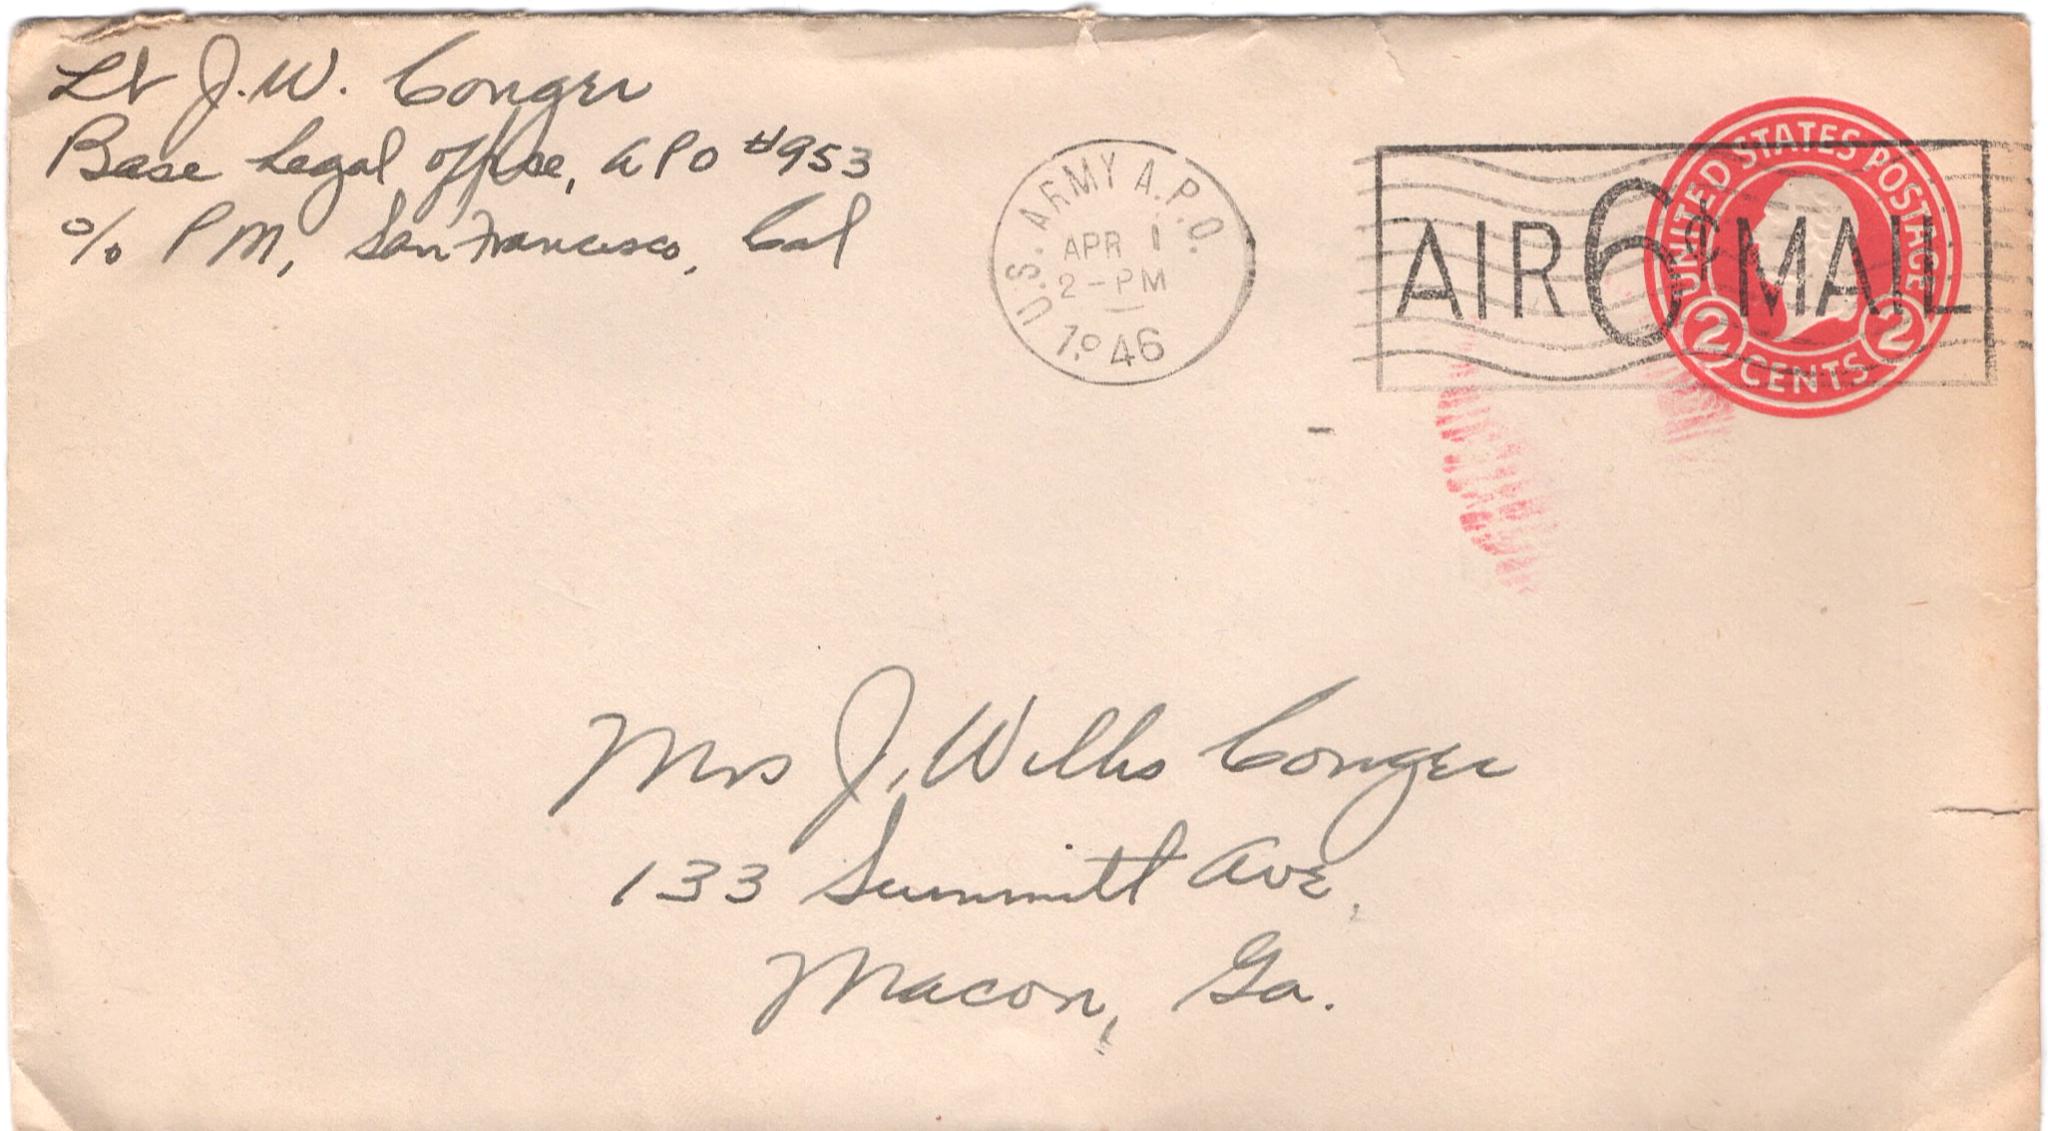 Lt J.W. Conger
Base Legal Office, APO #953
c/o PM, San Francisco, Cal
U.S. ARMY A.P.O.
APR 1
2-PM
1946
AIR 6¢ MAIL
UNITED STATES POSTAGE
2 CENTS 2
Mrs J. Willis Conger
133 Summitt Ave.
Macon, Ga.